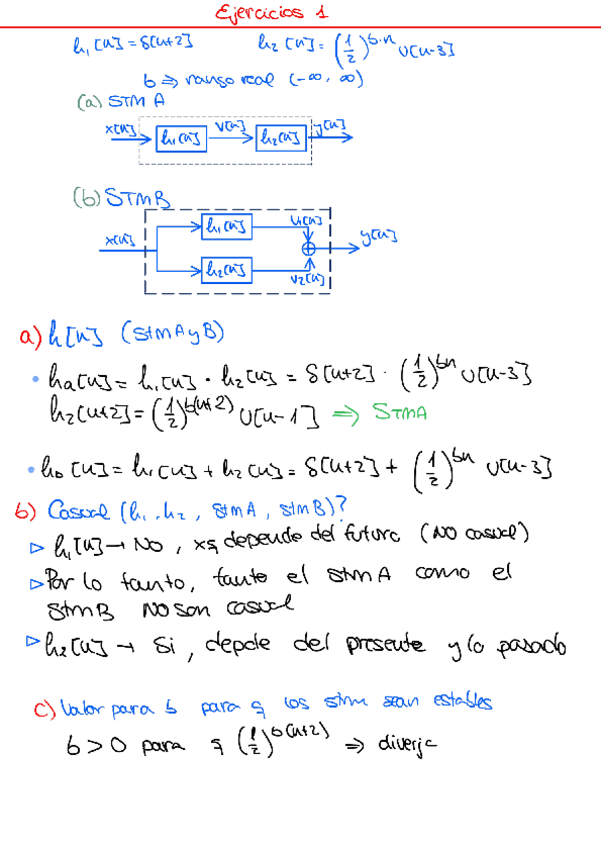 Ejercicios 1
h₁[n] = δ[n+2]   h₂[n] = (1/2)^{b·n} u[n-3]
b ⇒ rango real (-∞, ∞)
(a) STM A
x[n] h₁[n] v[n] h₂[n] y[n]
(b) STM B
x[n] h₁[n] v₁[n] y[n]
h₂[n] v₂[n]
a) h[n] (Stm A y B)
• ha[n] = h₁[n] · h₂[n] = δ[n+2] · (1/2)^{bn} u[n-3]
h₂[n+2] = (1/2)^{b(n+2)} u[n-1] ⇒ STMA
• hb[n] = h₁[n] + h₂[n] = δ[n+2] + (1/2)^{bn} u[n-3]
b) Casual (h₁, h₂, stm A, stm B)?
▷ h₁[n] → No, xq depende del futuro (NO casual)
▷ Por lo tanto, tanto el stm A como el
stm B NO son casual
▷ h₂[n] → Si, depde del presente y lo pasado
c) Valor para b para q los stm sean estables
b > 0 para q (1/2)^{b(n+2)} ⇒ diverja